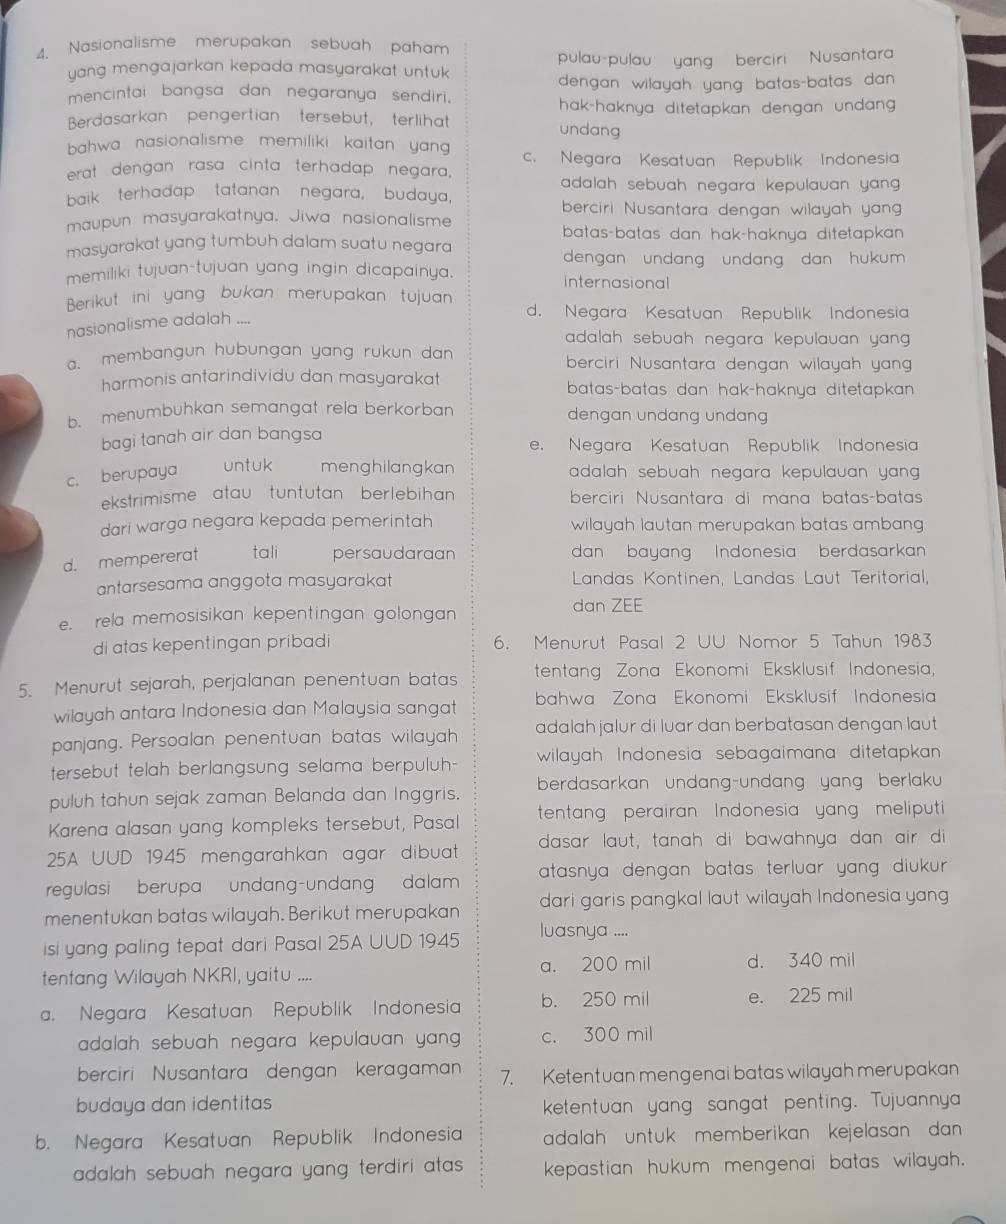 4. Nasionalisme merupakan sebuah paham
yang mengajarkan kepada masyarakat untuk
mencintai bangsa dan negaranya sendiri.
Berdasarkan pengertian tersebut, terlihat
bahwa nasionalisme memiliki kaitan yang
erat dengan rasa cinta terhadap negara,
baik terhadap tatanan negara, budaya,
maupun masyarakatnya. Jiwa nasionalisme
masyarakat yang tumbuh dalam suatu negara
memiliki tujuan-tujuan yang ingin dicapainya.
Berikut ini yang bukan merupakan tujuan
nasionalisme adalah ....
a. membangun hubungan yang rukun dan
harmonis antarindividu dan masyarakat
b. menumbuhkan semangat rela berkorban
bagi tanah air dan bangsa
c. berupaya untuk menghilangkan
ekstrimisme atau tuntutan berlebihan
dari warga negara kepada pemerintah
d. mempererat tali persaudaraan
antarsesama anggota masyarakat
e. rela memosisikan kepentingan golongan
di atas kepentingan pribadi
5. Menurut sejarah, perjalanan penentuan batas
wilayah antara Indonesia dan Malaysia sangat
panjang. Persoalan penentuan batas wilayah
tersebut telah berlangsung selama berpuluh-
puluh tahun sejak zaman Belanda dan Inggris.
Karena alasan yang kompleks tersebut, Pasal
25A UUD 1945 mengarahkan agar dibuat
regulasi berupa undang-undang dalam
menentukan batas wilayah. Berikut merupakan
isi yang paling tepat dari Pasal 25A UUD 1945
tentang Wilayah NKRI, yaitu ....
a. Negara Kesatuan Republik Indonesia
adalah sebuah negara kepulauan yang
berciri Nusantara dengan keragaman
budaya dan identitas
b. Negara Kesatuan Republik Indonesia
adalah sebuah negara yang terdiri atas
pulau-pulau yang berciri Nusantara
dengan wilayah yang batas-batas dan
hak-haknya ditetapkan dengan undang
undang
c. Negara Kesatuan Republik Indonesia
adalah sebuah negara kepulauan yang
berciri Nusantara dengan wilayah yang
batas-batas dan hak-haknya ditetapkan
dengan undang undang dan hukum
internasional
d. Negara Kesatuan Republik Indonesia
adalah sebuah negara kepulauan yang
berciri Nusantara dengan wilayah yang
batas-batas dan hak-haknya ditetapkan
dengan undang undang
e. Negara Kesatuan Republik Indonesia
adalah sebuah negara kepulauan yang
berciri Nusantara di mana batas-batas
wilayah lautan merupakan batas ambang
dan bayang Indonesia berdasarkan
Landas Kontinen, Landas Laut Teritorial,
dan ZEE
6. Menurut Pasal 2 UU Nomor 5 Tahun 1983
tentang Zona Ekonomi Eksklusif Indonesia,
bahwa Zona Ekonomi Eksklusif Indonesia
adalah jalur di luar dan berbatasan dengan laut
wilayah Indonesia sebagaimana ditetapkan
berdasarkan undang-undang yang berlaku
tentang perairan Indonesia yang meliputi
dasar laut, tanah di bawahnya dan air di
atasnya dengan batas terluar yang diukur
dari garis pangkal laut wilayah Indonesia yang
luasnya ....
a. 200 mil d. 340 mil
b. 250 mil e. 225 mil
c. 300 mil
7. Ketentuan mengenai batas wilayah merupakan
ketentuan yang sangat penting. Tujuannya
adalah untuk memberikan kejelasan dan
kepastian hukum mengenai batas wilayah.